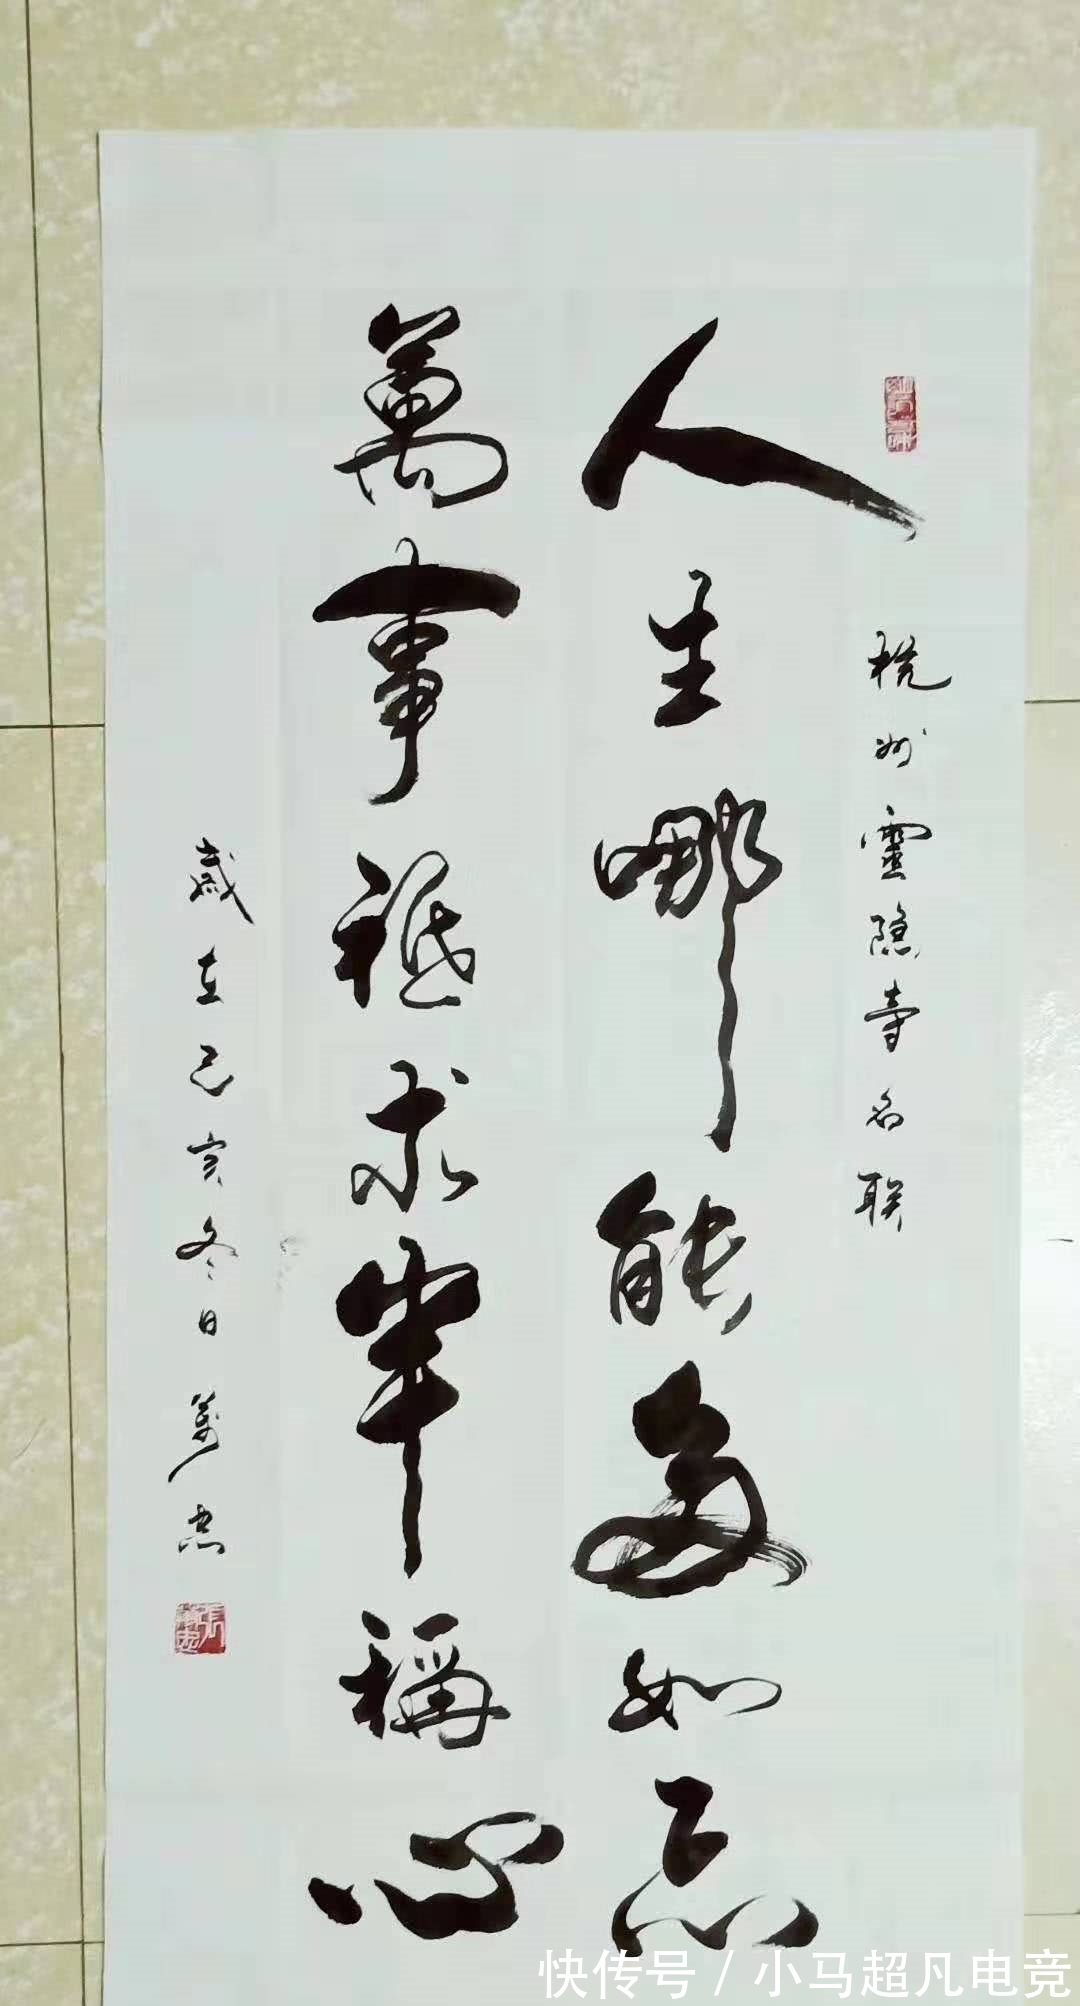 杭州靈隐寺名联
人生哪能多如意
萬事祗求半稱心
歳在己亥冬日萬忠
快传号/小马超凡电竞